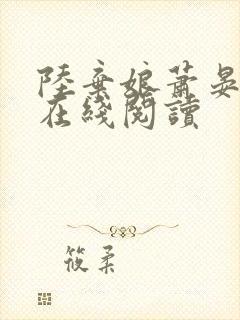 陸棄娘蕭晏
在綫閱讀
筱柔